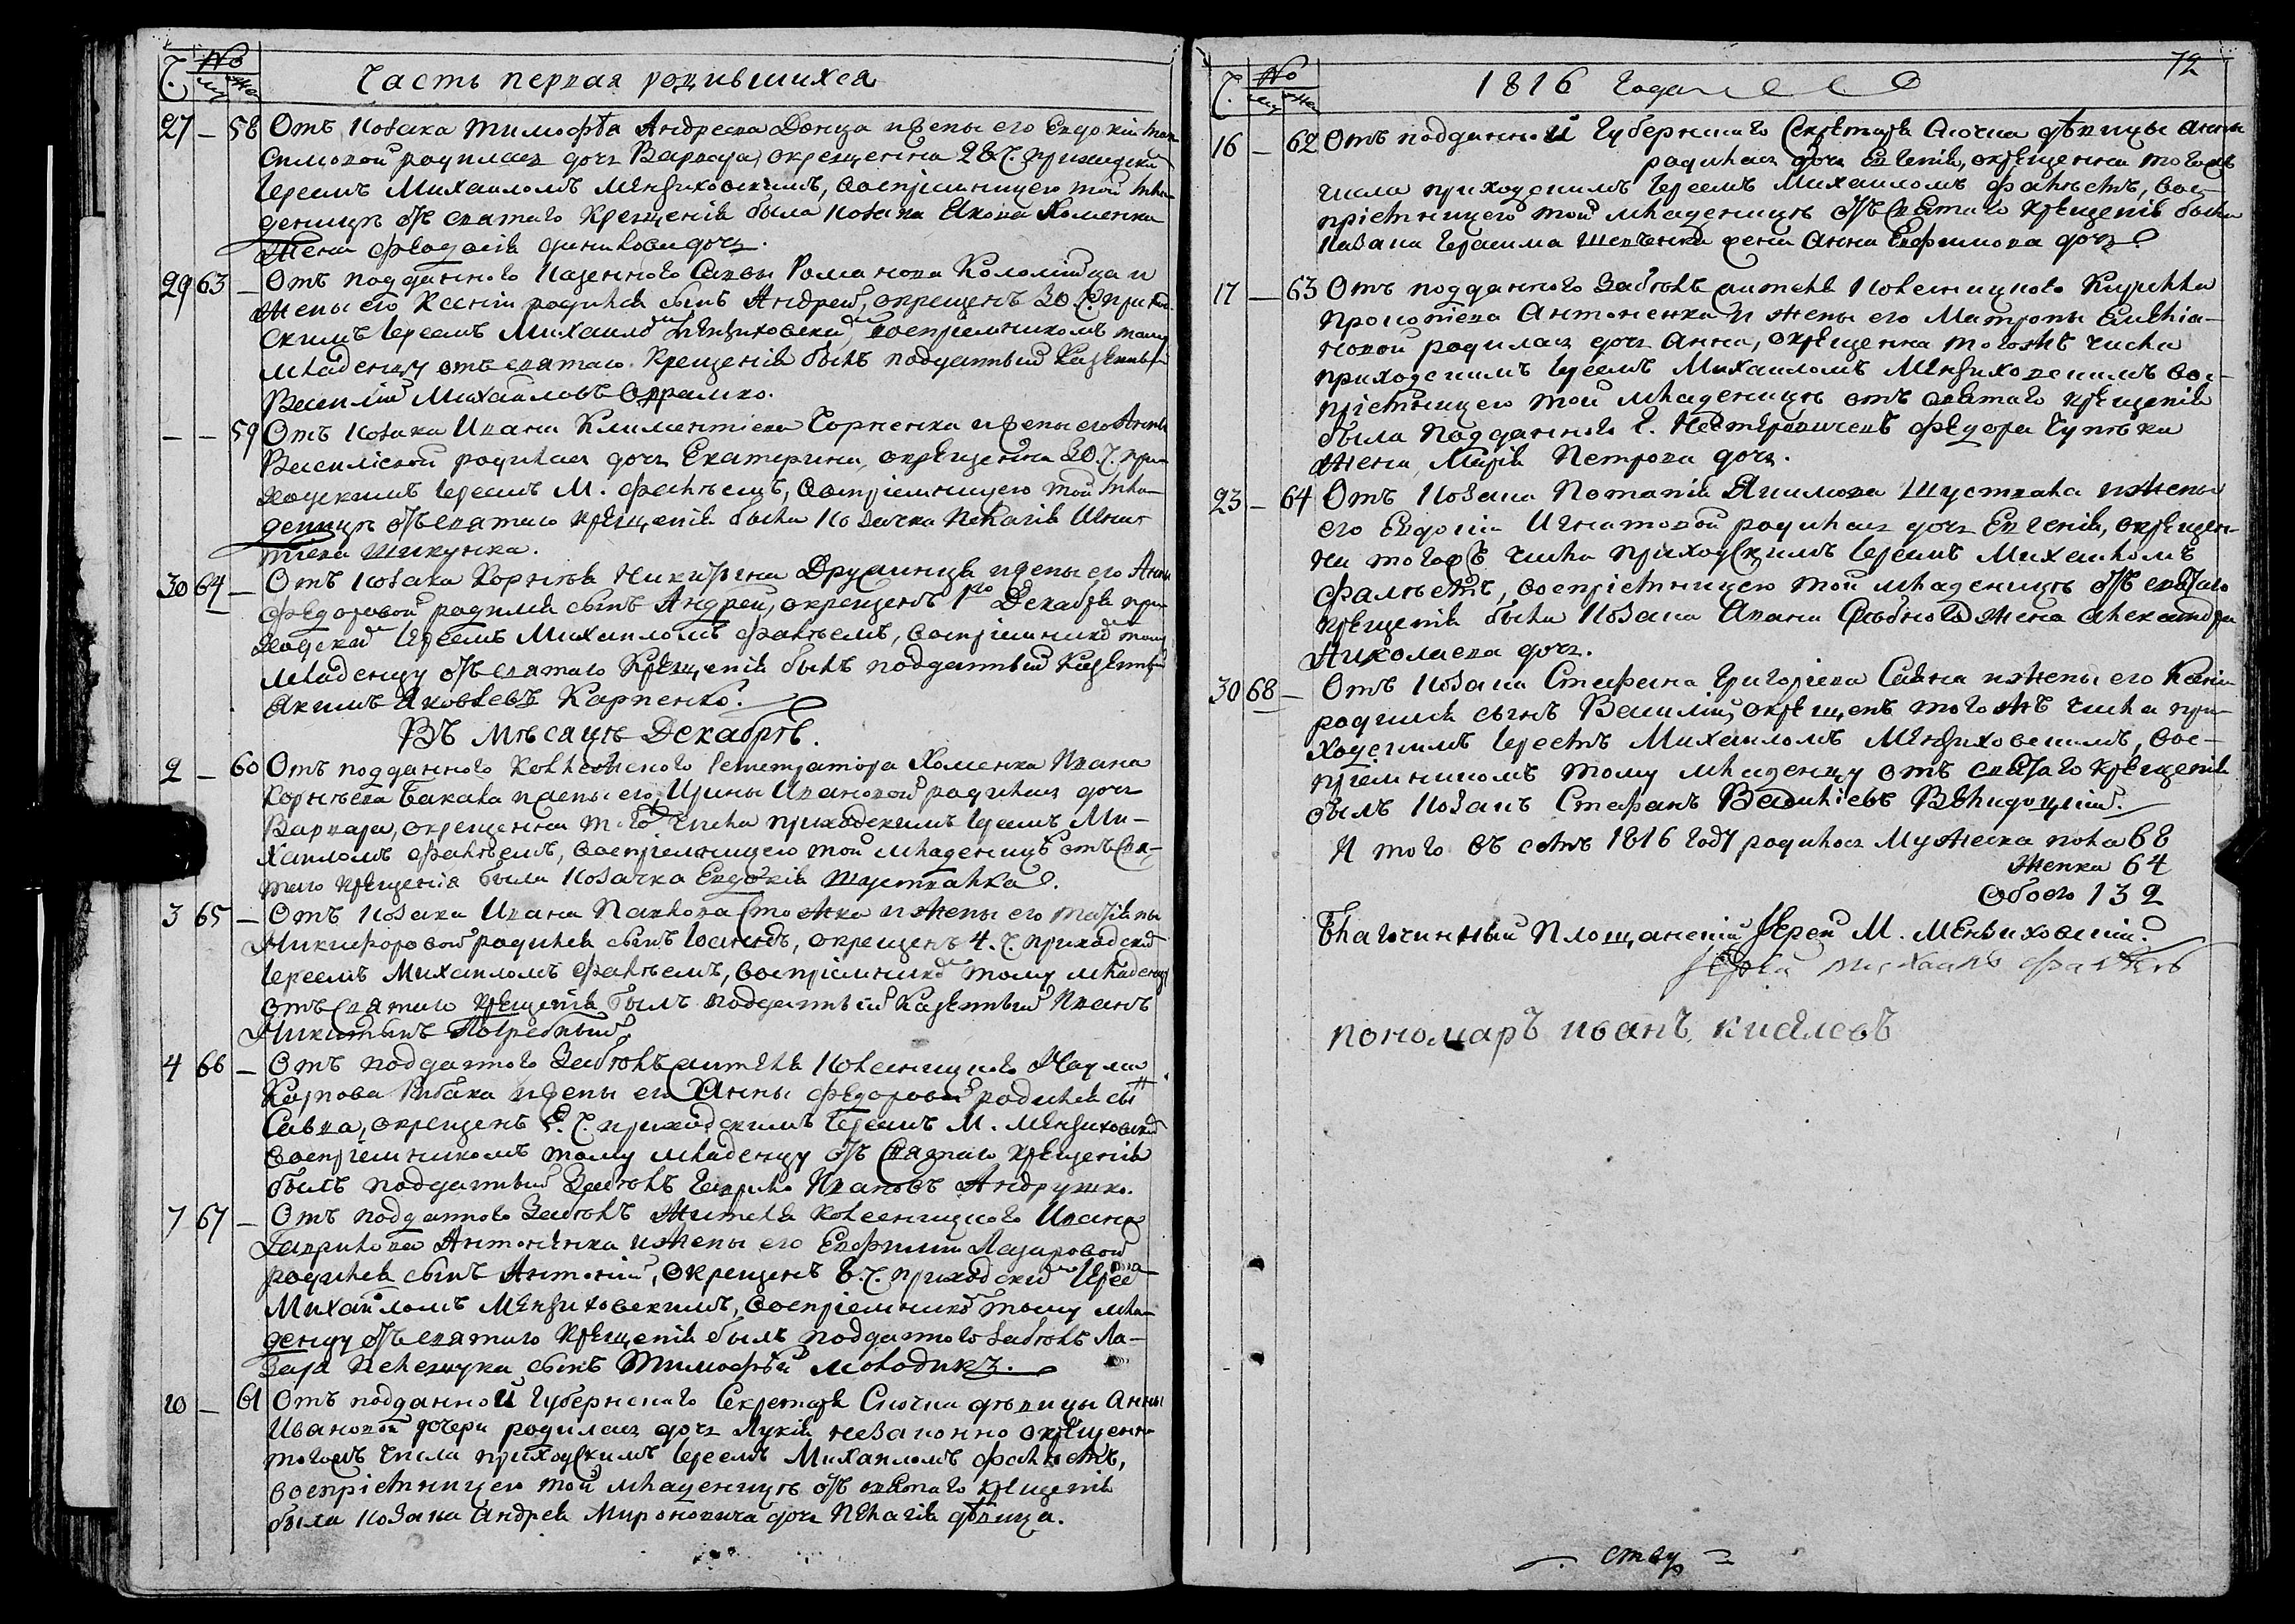 Ч. №
Му Же
Часть первая родившихся
27 — 58 Отъ козака Тимофѣа Андреева Донца и жены его Евдокіи Мак
симовой родилась дочь Варвара, окрещенна 28 Ч. приходским
Іереемъ Михаиломъ Мензиховскимъ, воспріемницею той мла-
денице отъ святаго крещенія была козака Якова Хоменка
жена Феодосія дочь.
29 63 — Отъ подданного казенного Саввы Романова Коломійца и
жены его Ксеніи родился сынъ Андрей, окрещенъ 30 Ч. приход
скимъ Іереемъ Михаило Мензиховски, воспріемникомъ тому
младенцу отъ святаго крещенія былъ подданный казенный
Василій Михайловъ
— — 59 Отъ козака Ивана Климентіева Чорненка и жены его Анны
Василіевой родилась дочь Екатерина, окрещенна 30. Ч. при-
ходскимъ Іереемъ М. Фалѣемъ, воспріемницею той мла-
денице отъ святаго крещенія была козачка Пелагія Игнат
тіева Шикунка.
30 64 — Отъ козака Корнѣя Никитина и жены его Анны
Федоровой родился сынъ Андрей, окрещенъ 1го Декабря при-
ходскимъ Іереемъ Михаиломъ Фалѣемъ, воспріемнико тому
младенцу отъ святаго крещенія былъ подданный казенный
Акимъ Яковлевъ Карпенко.
Въ мѣсяцѣ Декабрѣ.
2 — 60 Отъ подданного Коллежского Регистратора Хоменка Ивана
Корнѣева Бакала и жены его Ирины Ивановой родилась дочь
Варвара, окрещенна того числа приходскимъ Іереемъ Ми-
хаиломъ Фалѣемъ, воспріемницею той младеницѣ отъ Свя-
таго крещенія была козачка Евдокія Шуствалка.
3 65 — Отъ козака Ивана Павлова и жены его
Никифоровой родился сынъ Іоаннъ, окрещенъ 4. Ч. приходски
Іереемъ Михаиломъ Фалѣемъ, воспріемнико тому младенцу
отъ Святаго крещенія былъ подданный казенный Иванъ
Никитинъ Погребный
4 66 — Отъ подданного Забѣлѣ жителя Ковсницкого Наума
Карпова Рибака и жены его Анны Федоровой родился сы
Савва, окрещенъ 5. Ч. приходскимъ Іереемъ М. Мензиховски
воспріемникомъ тому младенцу отъ Святаго крещенія
былъ подданный Забѣлѣ Гаврило Ивановъ Андрушко.
7 67 — Отъ подданного Забѣлѣ жителя Ковсницкого Ивана
Гаврилова Антоненка и жены его Евфиміи Лазаровой
родился сынъ Антоній, окрещенъ 8. Ч. приходски Іерее
Михаиломъ Мензиховскимъ, воспріемнико тому мла-
денцу отъ святаго крещенія былъ подданного Забѣлѣ Ла-
заря Пелещука сынъ Тимофѣй молодикъ.
10 — 61 Отъ подданной Губернского Секретаря Слочки дѣвицы Анны
Ивановой дочери родилась дочь Лукія незаконно окрещена
тогожъ числа приходскимъ Іереемъ Михаиломъ Фалѣемъ,
воспріемницею той младеницѣ отъ святаго крещенія
была козака Андрея Мироновича дочь Пелагія дѣвица.
72
Ч. №
Му Же
1816 года
16 — 62 Отъ подданной Губернского Секретаря Слочки дѣвицы Анны
родилась дочь Евгенія, окрещенна тогожъ
числа приходскимъ Іереемъ Михаиломъ Фалѣемъ, вос-
пріемницею той младеницѣ отъ Святаго крещенія была
козака Герасима Шевченка жена Анна Евфимова дочь
17 — 63 Отъ подданного Забѣлѣ жителя Ковсницкого Кирилла
Прокопіева Антоненка и жены его Матроны Емелія-
новой родилась дочь Анна, окрещенна тогожъ числа
приходскимъ Іереемъ Михаиломъ Мензиховскимъ вос-
пріемницею той младеницѣ отъ святаго крещенія
была подданного Г. Федора
жена Марія Петрова дочь.
23 — 64 Отъ козака Потапія Якимова Шуствала и жены
его Евдокіи Игнатовой родилась дочь Евгенія, окрещен-
на тогожъ числа приходскимъ Іереемъ Михаиломъ
Фалѣемъ, воспріемницею той младеницѣ отъ святаго
крещенія была козака Ивана жена Александра
Николаева дочь.
30 68 — Отъ козака Стефана Григоріева Савна и жены его
родился сынъ Василій, окрещенъ тогожъ числа при-
ходскимъ Іереемъ Михаиломъ Мензиховскимъ, вос-
пріемникомъ тому младенцу отъ святаго крещенія
былъ козакъ Стефанъ Василіевъ
И того въ семъ 1816 году родилось Мужеска пола 68
Женска 64
Обоего 132
Благочинный Площанскій Іерей М. Мензиховскій.
Іерей Михаилъ Фалѣевъ
пономаръ иванъ киялевъ